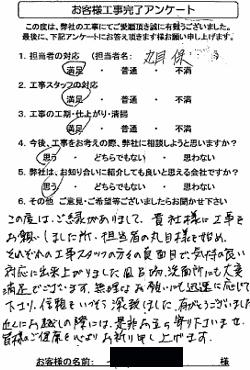 お客様工事完了アンケート
この度は、弊社の工事にてご愛顧頂き誠に有難うございました。
最後に、下記アンケートにお答え頂きます様お願い申し上げます。
1. 担当者の対応 (担当者名: 丸目 保
満足 ・ 普通 ・ 不満
2. 工事スタッフの対応
満足 ・ 普通 ・ 不満
3. 工事の工期・仕上がり・清掃
満足 ・ 普通 ・ 不満
4. 今後、工事をお考えの際、弊社に相談しようと思いますか?
思う ・ どちらでもない ・ 思わない
5. 弊社は、お知り合いに紹介しても良いと思える会社ですか?
思う ・ どちらでもない ・ 思わない
6. その他 ご意見・ご希望等ございましたらお聞かせ下さい
この度は、ご縁がありまして、貴社様に工事を
お願いしました所、担当者の丸目様を始め、
それぞれの工事スタッフの方々の真面目で、気持の良い
対応に出来上がりました風呂場、洗面所にも大変
満足でございます。無理なお願いでも迅速に応じて
下さり、信頼をいっそう深致しました。有がとうございました
近くにお越しの際には、是非お立ち寄り下さいませ。
皆様のご健康を心よりお祈り申し上げます。
お客様の名前: 様